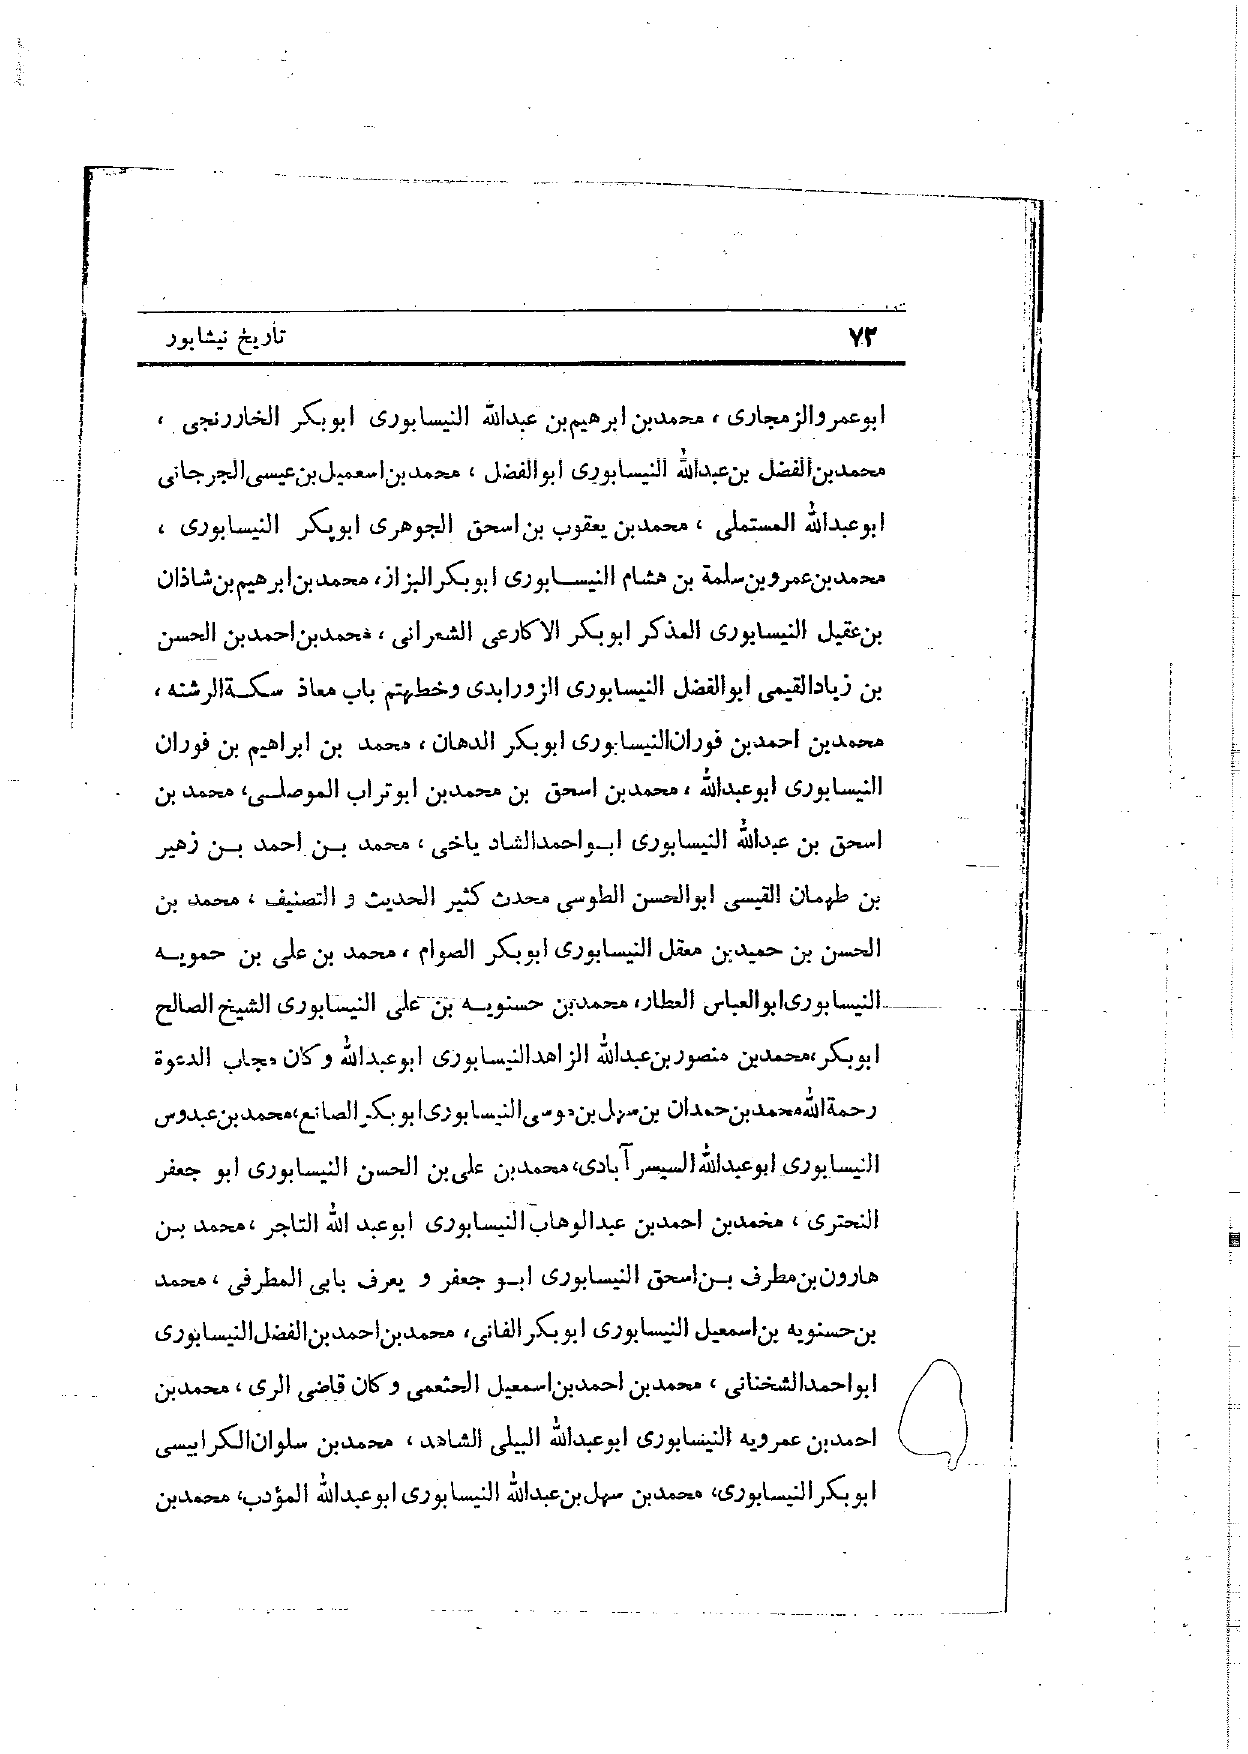 ۷۲
تاریخ نیشابور
ابوعمرو الزمجاری ، محمدبن ابرهیم‌بن عبدالله النیسابوری ابوبکر الخاررنجی ،
محمدبن‌الفضل بن‌عبدالله النیسابوری ابوالفضل ، محمدبن‌اسعمیل‌بن‌عیسی‌الجرجانی
ابوعبدالله المستملی ، محمدبن یعقوب بن‌اسحق الجوهری ابوبکر النیسابوری ،
محمدبن‌عمروبن‌سلمة بن هشام النیسابوری ابوبکرالبزاز، محمدبن‌ابرهیم‌بن‌شاذان
بن‌عقیل النیسابوری المذکر ابوبکر الاکارعی الشعرانی ، محمدبن‌احمدبن الحسن
بن زیادالقیمی ابوالفضل النیسابوری الزورابدی وخطهتم باب معاذ سکةالرشته ،
محمدبن احمدبن فوران‌النیسابوری ابوبکر الدهان ، محمد بن ابراهیم بن فوران
النیسابوری ابوعبدالله ، محمدبن اسحق بن محمدبن ابوتراب الموصلی، محمد بن
اسحق بن عبدالله النیسابوری ابواحمدالشاد یاخی ، محمد بن احمد بن زهیر
بن طهمان القیسی ابوالحسن الطوسی محدث کثیر الحدیث و التصنیف ، محمد بن
الحسن بن حمیدبن معقل النیسابوری ابوبکر الصوام ، محمد بن علی بن حمویه
النیسابوری‌ابوالعباس العطار، محمدبن حسنویه بن علی النیسابوری الشیخ الصالح
ابوبکر،محمدبن منصوربن‌عبدالله الزاهدالنیسابوری ابوعبدالله وکان مجاب الدعوة
رحمةالله‌محمدبن‌حمدان بن‌سهل‌بن‌موسی‌النیسابوری‌ابوبکر الصانع،محمدبن‌عبدوس
النیسابوری ابوعبدالله‌السیسرآبادی، محمدبن علی‌بن الحسن النیسابوری ابو جعفر
النحتری ، محمدبن احمدبن عبدالوهاب‌النیسابوری ابوعبد الله التاجر ، محمد بن
هارون‌بن‌مطرف بن‌اسحق النیسابوری ابو جعفر و یعرف بابی المطرفی ، محمد
بن‌حسنویه بن‌اسمعیل النیسابوری ابوبکرالفانی، محمدبن‌احمدبن‌الفضل‌النیسابوری
ابواحمدالشخنانی ، محمدبن احمدبن‌اسمعیل الحثعمی وکان قاضی الری ، محمدبن
احمدبن عمرویه النیسابوری ابوعبدالله البیلی الشاهد ، محمدبن سلوان‌الکرابیسی
ابوبکرالنیسابوری، محمدبن سهل‌بن‌عبدالله النیسابوری ابوعبدالله المؤدب، محمدبن